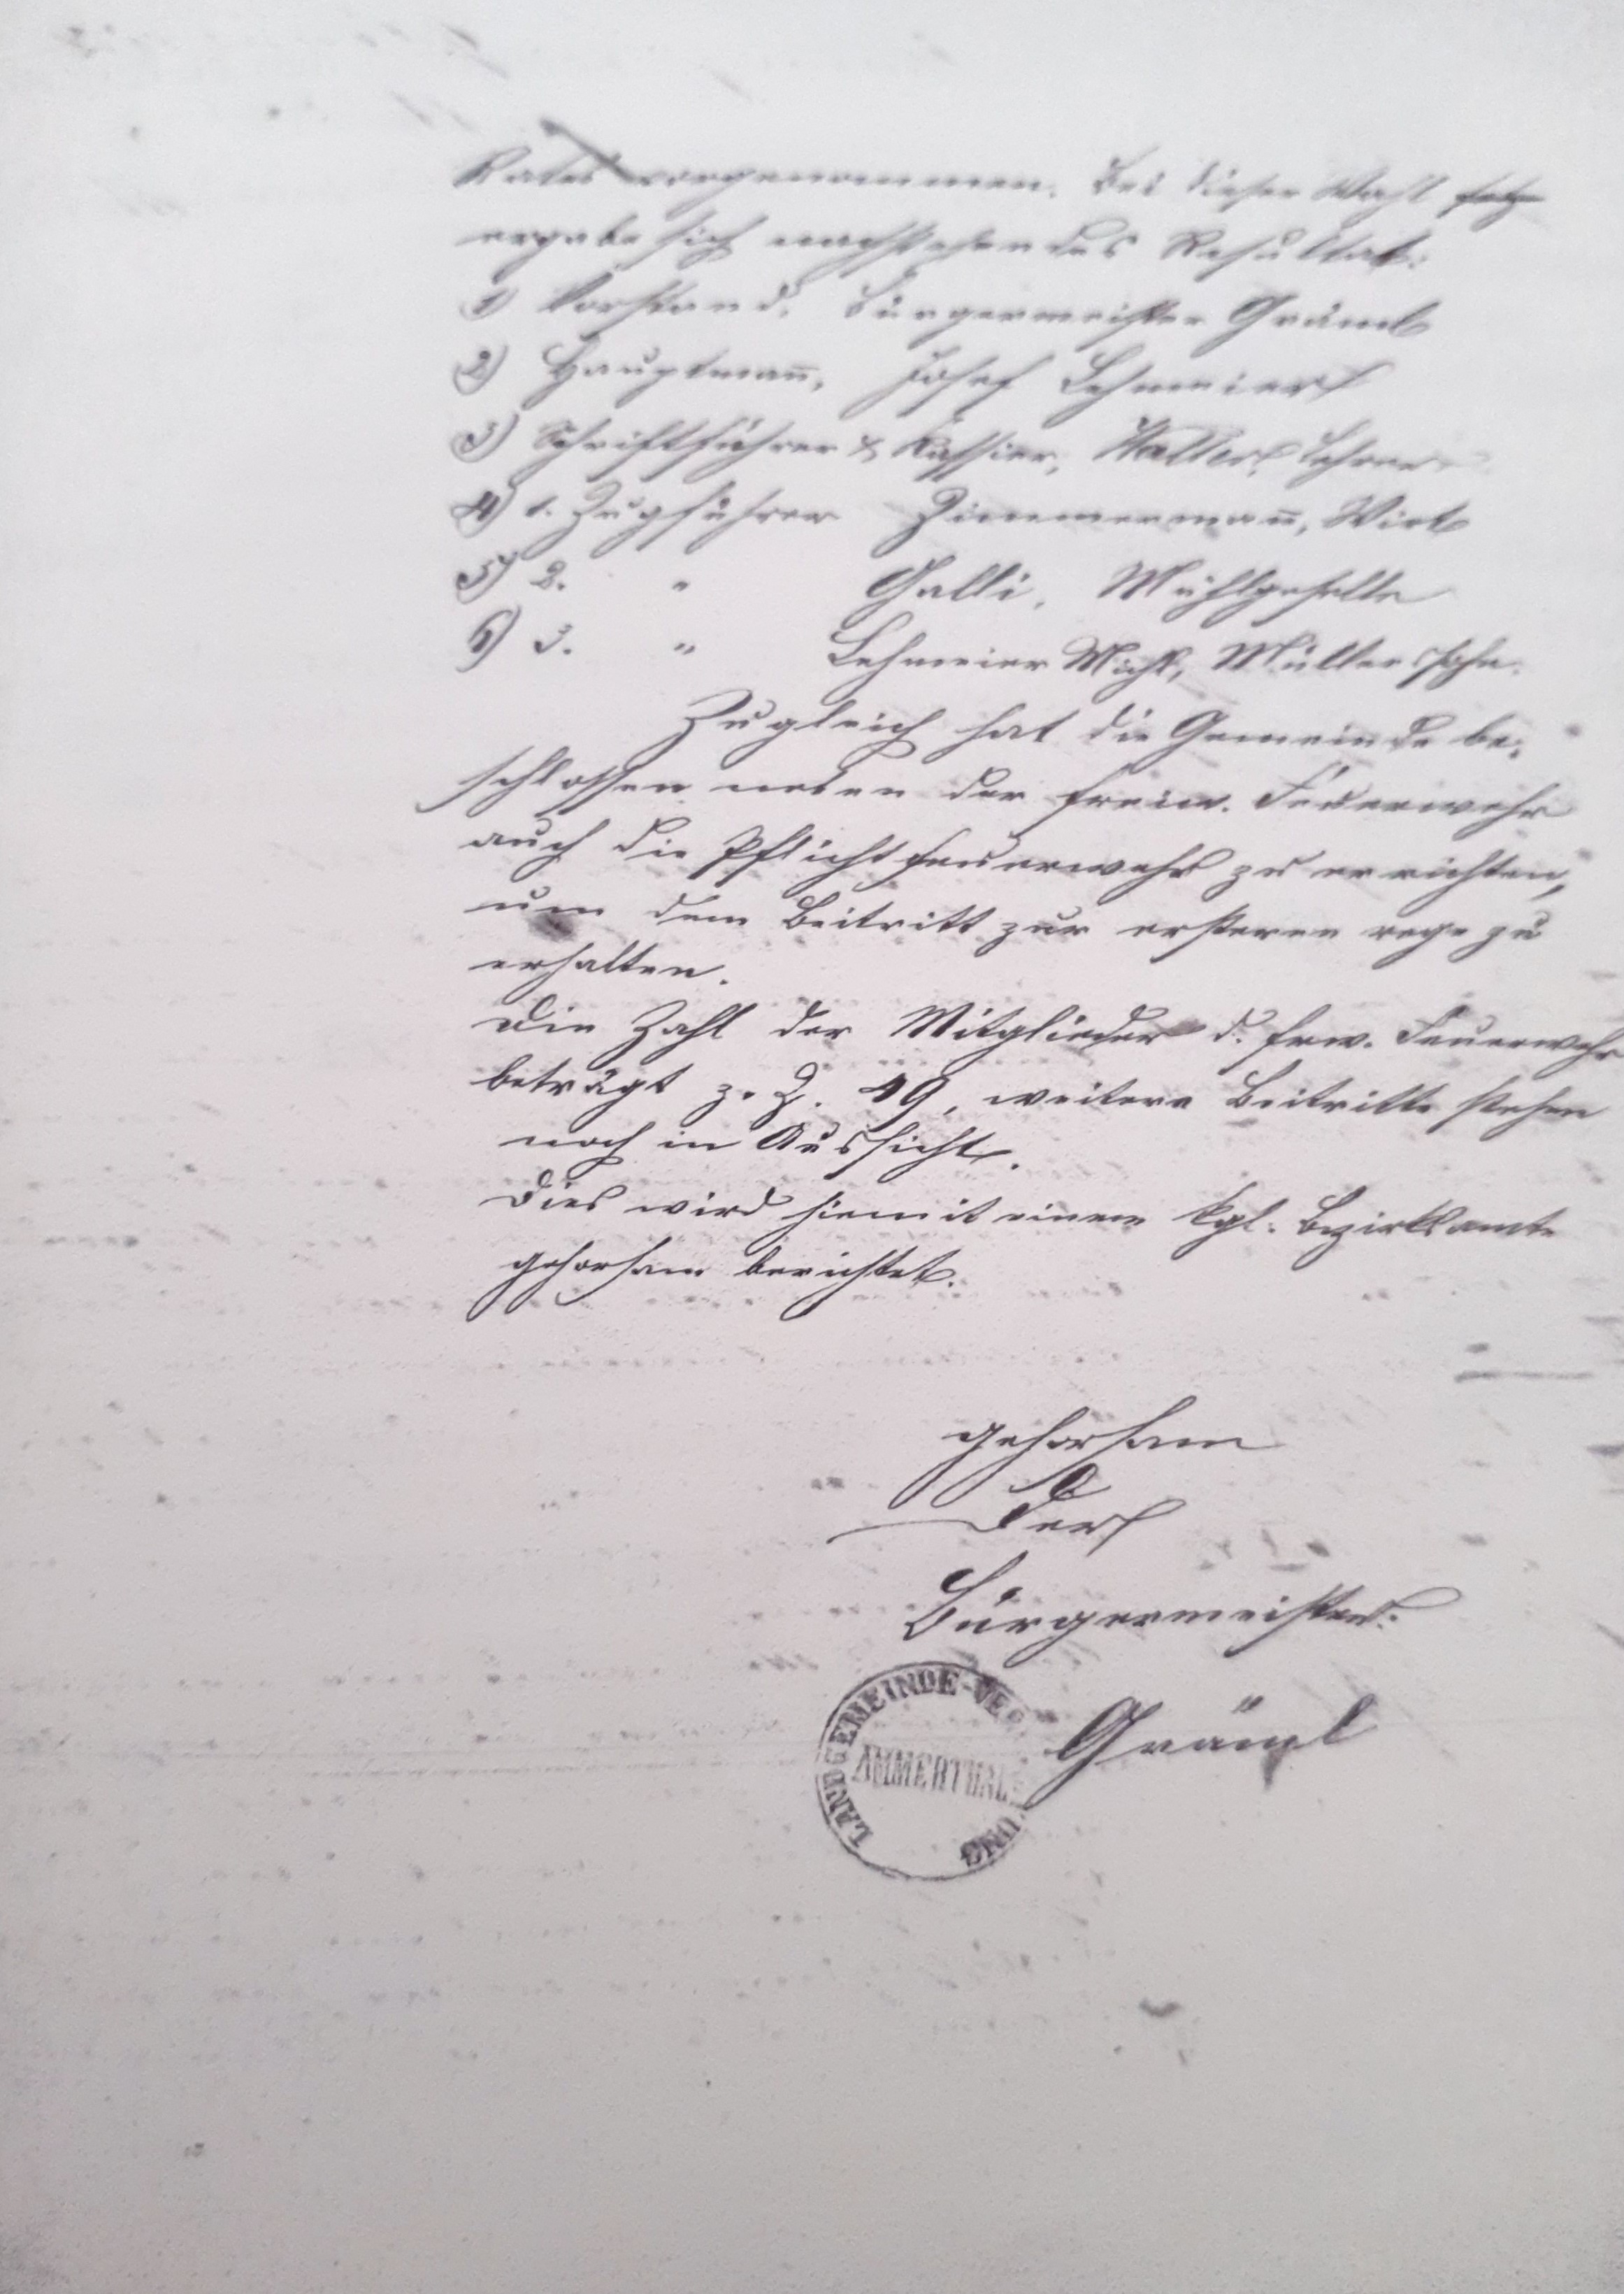 Rates vorgenommen. Bei dieser Wahl
ergabe sich nachstehendes Resultat:
1) Vorstand, Bürgermeister Gräml
2) Hauptmañ, Josef Lehmeier
3) Schriftführer & Kassier, Haller, Lehrer
4) 1. Zugführer Zimmermañ, Wirt
5) 2. " Galli, Mühlgeselle
6) 3. " Lehmeier Michl, Müllerssohn.
Zugleich hat die Gemeinde be-
schlossen neben der freiw. Feuerwehr
auch die Pflichtfeuerwehr zu errichten,
um den Beitritt zur ersteren rege zu
erhalten.
Die Zahl der Mitglieder d. frw. Feuerwehr
beträgt z. Z. 49, weitere Beitritte stehen
noch in Aussicht.
Dies wird hiemit einem kgl. Bezirksamte
gehorsam berichtet.
gehorsam
Der
Bürgermeister:
Gräml
LANDGEMEINDE-VER UNG
AMMERTHAL